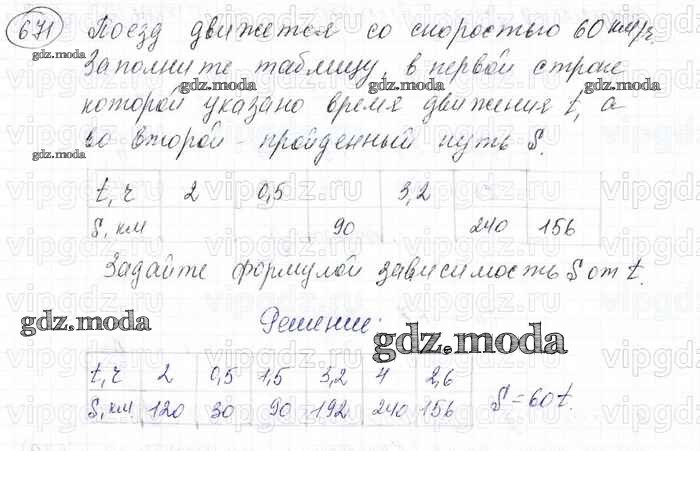 671 Поезд движется со скоростью 60 км/ч.
Заполните таблицу, в первой строке
которой указано время движения t, а
во второй - пройденный путь S.
t, ч 2 0,5 3,2
S, км 90 240 156
Задайте формулой зависимость S от t.
Решение:
t, ч 2 0,5 1,5 3,2 4 2,6
S, км 120 30 90 192 240 156 S = 60t.
gdz.moda
gdz.moda
gdz.moda
gdz.moda
gdz.moda
gdz.moda
gdz.moda
vipgdz.ru